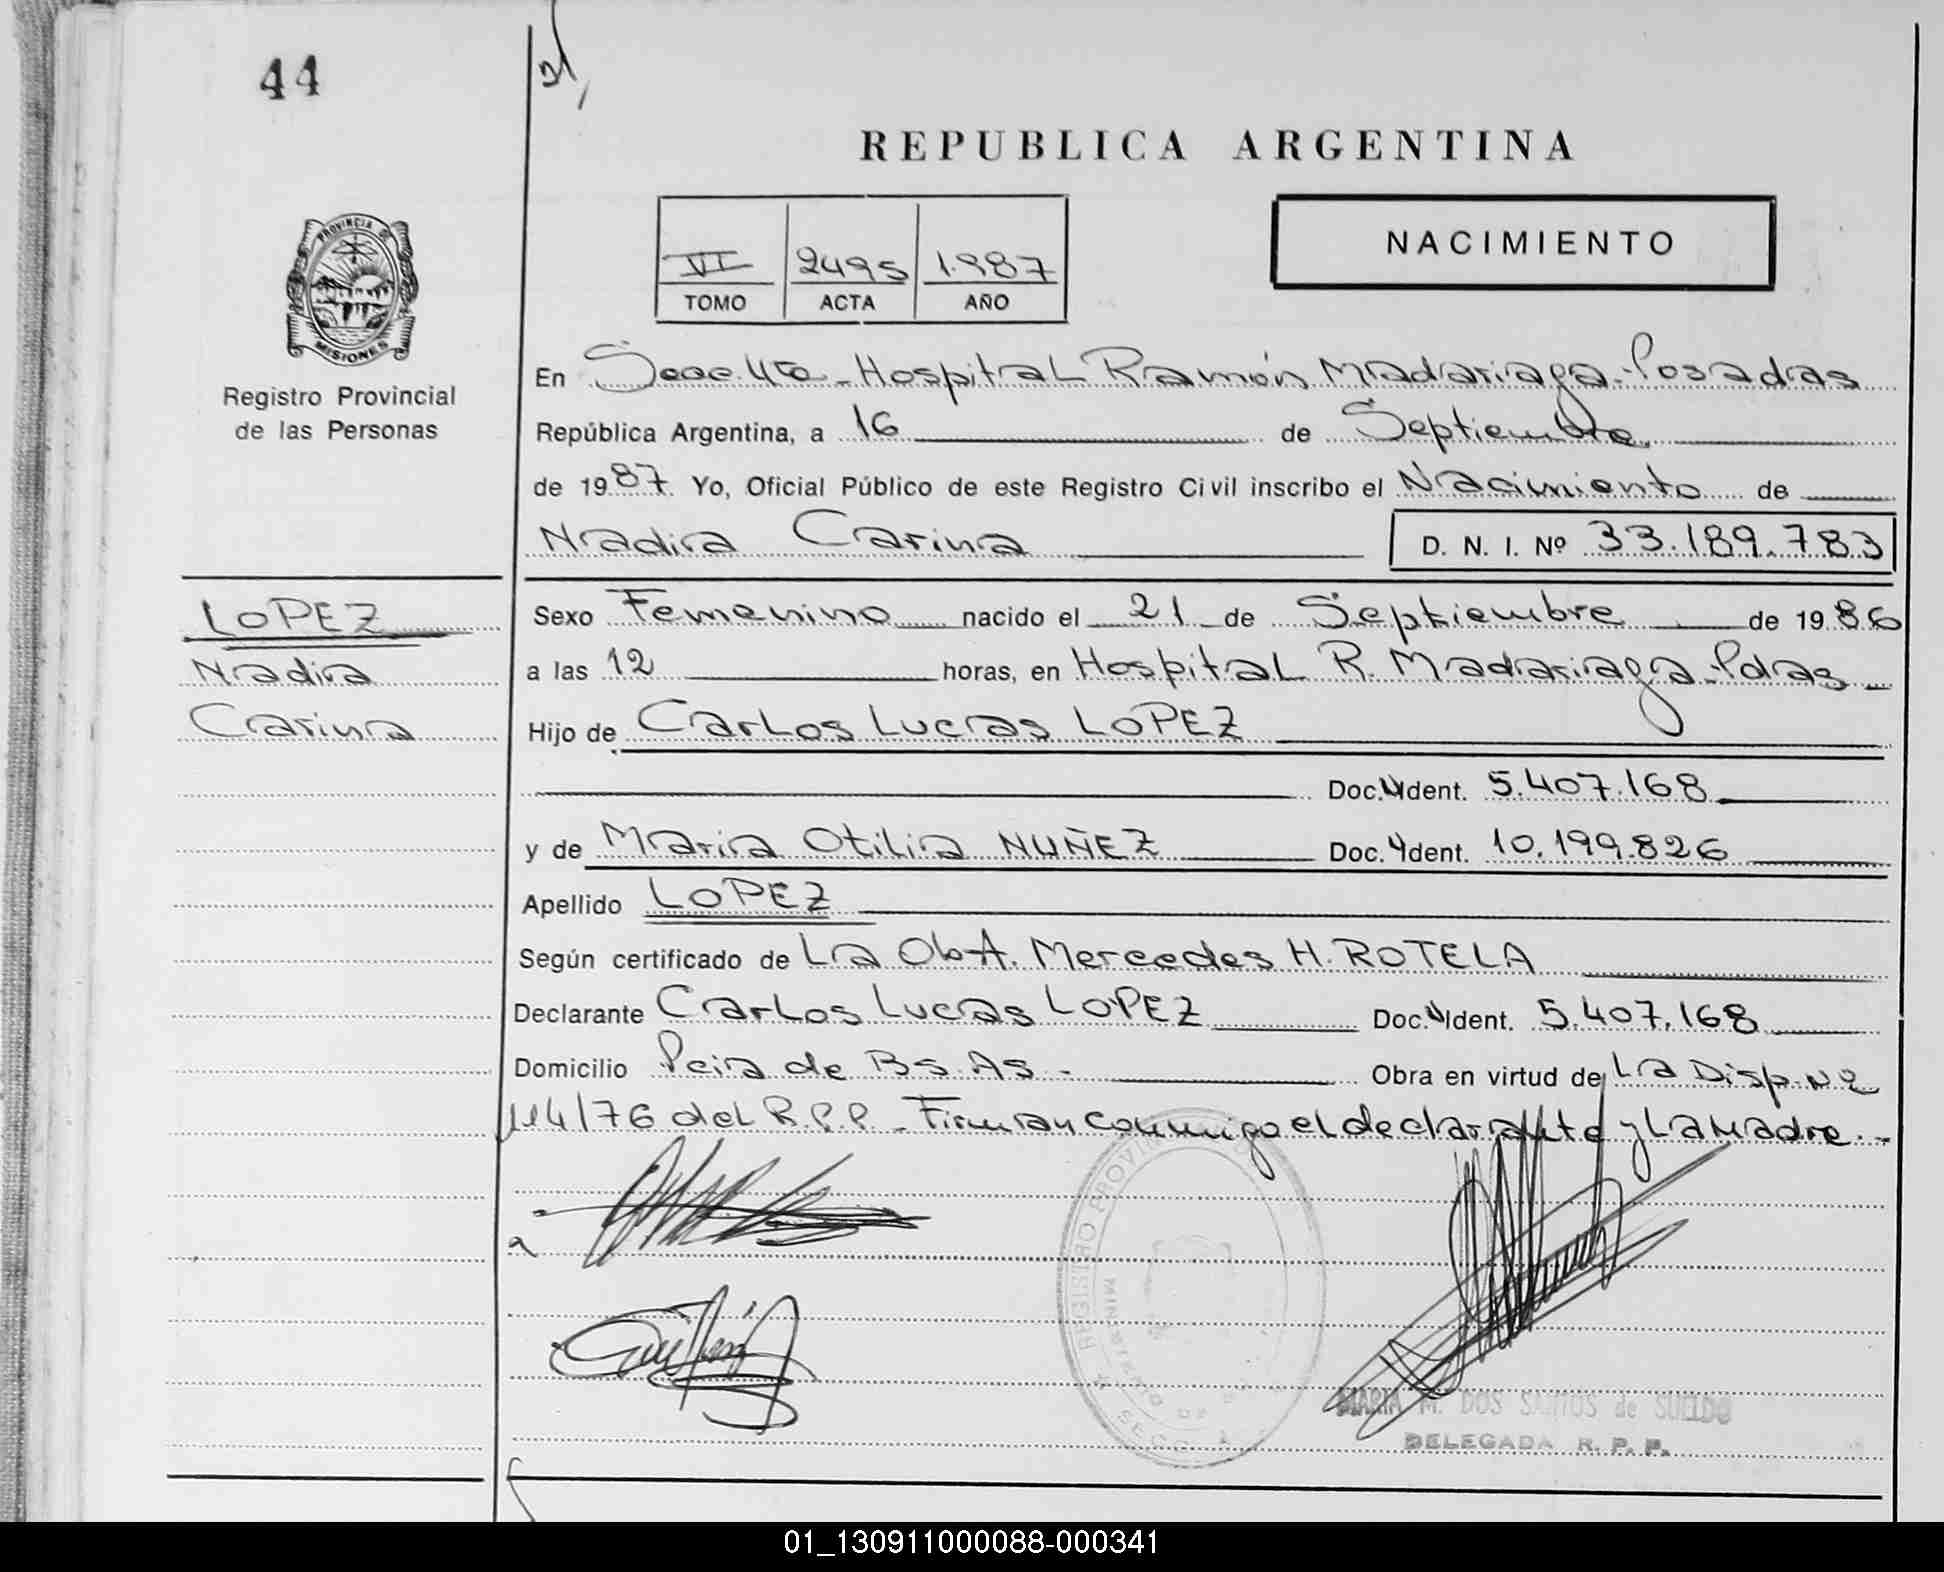 44
REPUBLICA ARGENTINA
VI 2495 1.987
TOMO ACTA AÑO
NACIMIENTO
PROVINCIA DE
MISIONES
Registro Provincial
de las Personas
En Secc. 4ta - Hospital Ramón Madariaga - Posadas
República Argentina, a 16 de Septiembre
de 1987. Yo, Oficial Público de este Registro Civil inscribo el Nacimiento de
Nadia Carina D. N. I. Nº 33.189.783
LOPEZ
Nadia
Carina
Sexo Femenino nacido el 21 de Septiembre de 1986
a las 12 horas, en Hospital R. Madariaga - Pdas -
Hijo de Carlos Lucas LOPEZ
Doc. Ident. 5.407.168
y de Maria Otilia NUÑEZ Doc. Ident. 10.199.826
Apellido LOPEZ
Según certificado de La Obst. Mercedes H. ROTELA
Declarante Carlos Lucas LOPEZ Doc. Ident. 5.407.168
Domicilio Pcia de Bs. As. - Obra en virtud de La Disp. Nº
114/76 del R.P.P. - Firman conmigo el declarante y la Madre. -
REGISTRO PROVINCIAL
MINISTERIO DE
SECC. 4
MARIA M. DOS SANTOS de SUELDO
DELEGADA R. P. P.
01_130911000088-000341